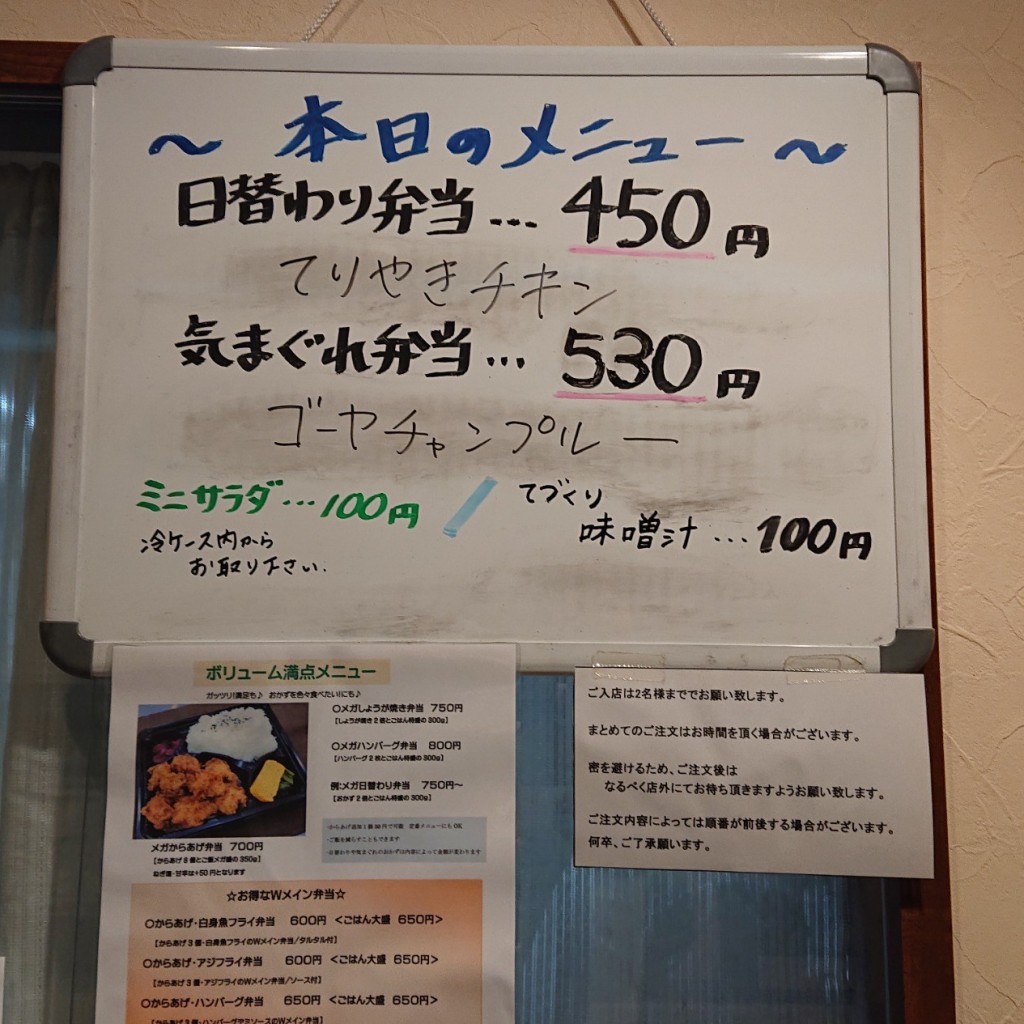 ～ 本日のメニュー ～
日替わり弁当 … 450円
てりやきチキン
気まぐれ弁当 … 530円
ゴーヤチャンプルー
ミニサラダ…100円 / てづくり
味噌汁 …100円
冷ケース内から
お取り下さい.
ボリューム満点メニュー
ガッツリ!満足も♪ おかずを色々食べたい!にも♪
○メガしょうが焼き弁当 750円
【しょうが焼き2倍とごはん特盛の300g】
○メガハンバーグ弁当 800円
【ハンバーグ2枚とごはん特盛の300g】
例:メガ日替わり弁当 750円～
【おかず2倍とごはん特盛の300g】
・ご飯を減らすこともできます
メガからあげ弁当 700円
【からあげ8個とご飯メガ盛の350g】
ねぎ塩・甘辛は+50円となります
☆お得なWメイン弁当☆
○からあげ・白身魚フライ弁当 600円 <ごはん大盛 650円>
【からあげ3個・白身魚フライのWメイン弁当/タルタル付】
○からあげ・アジフライ弁当 600円 <ごはん大盛 650円>
【からあげ3個・アジフライのWメイン弁当/ソース付】
○からあげ・ハンバーグ弁当 650円 <ごはん大盛 650円>
【からあげ3個・ハンバーグデミソースのWメイン弁当】
ご入店は2名様まででお願い致します。
まとめてのご注文はお時間を頂く場合がございます。
密を避けるため、ご注文後は
なるべく店外にてお待ち頂きますようお願い致します。
ご注文内容によっては順番が前後する場合がございます。
何卒、ご了承願います。